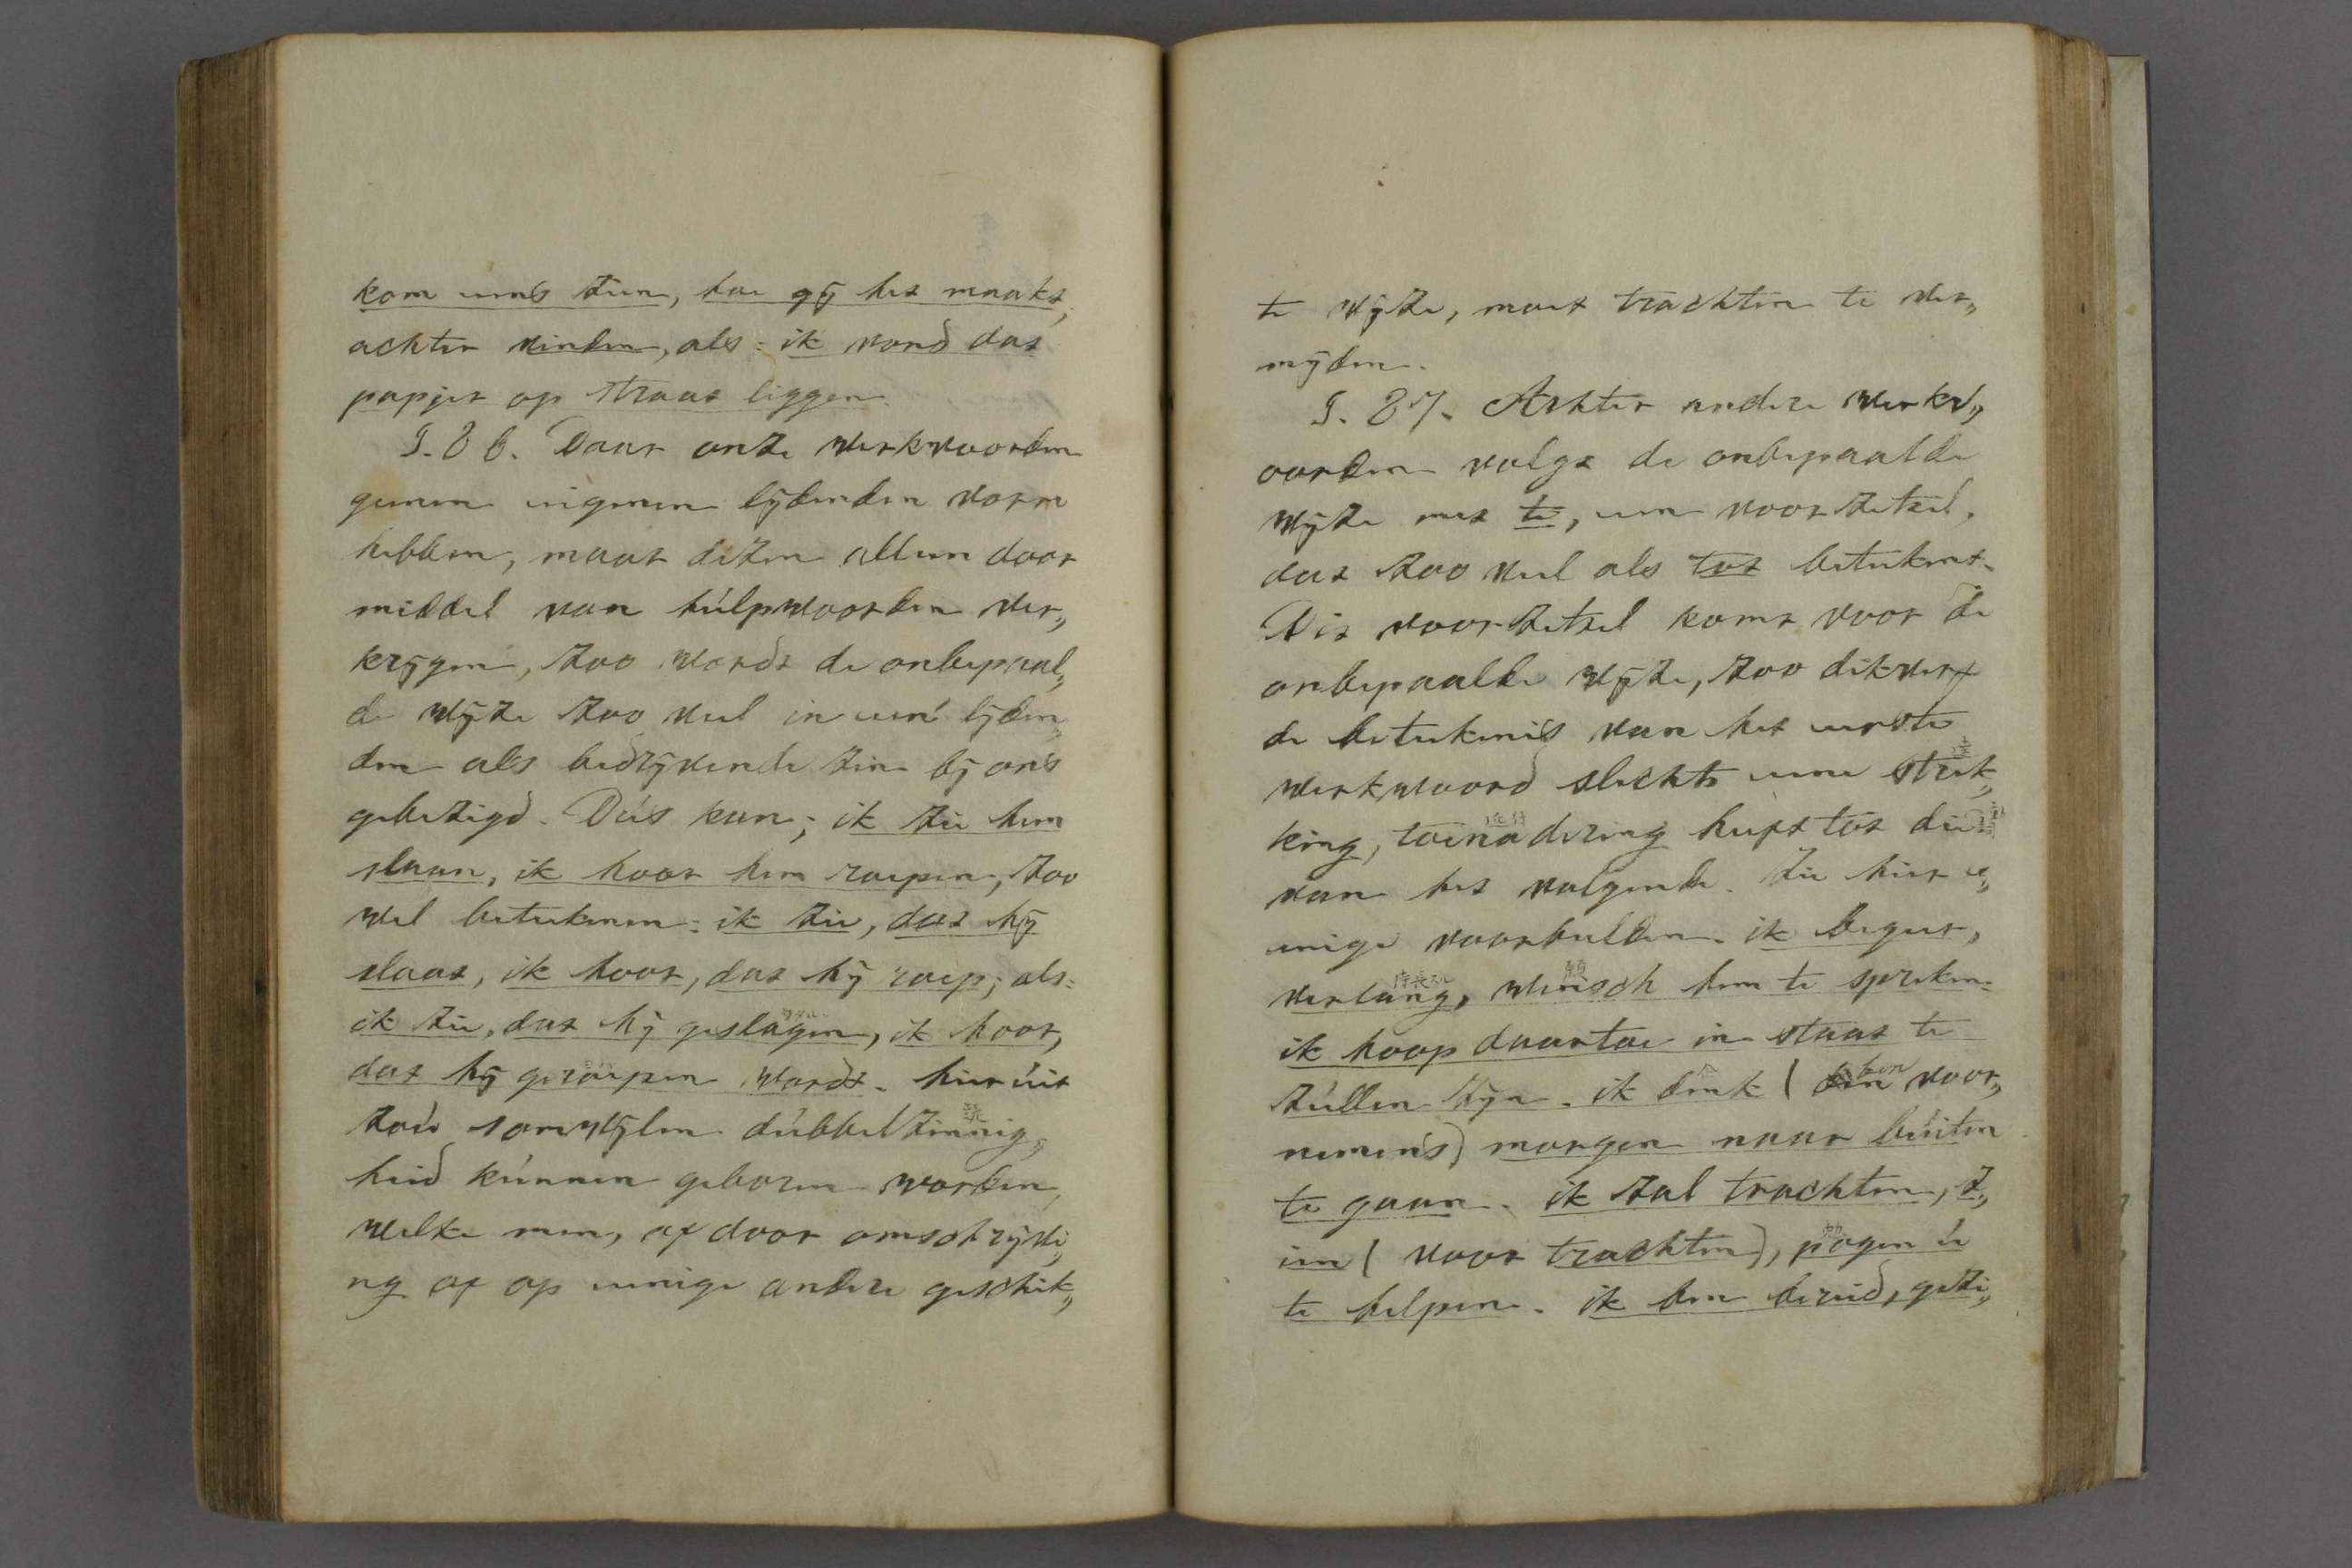 kom eens zien, hoe gÿ het maakt,
achter vinden, als: ik vond dat
papjer op straat liggen.
§. 86. Daar onze werkwoorden
geenen eigenen lÿdenden vorm
hebben, maar dezen alleen door
middel van húlpwoorden ver„
krÿgen, zoo wordt de onbepaal„
de wÿze zoo veel in een' lÿden„
den als bedrÿvende zin bÿ ons
gebezigd. Dús kan; ik zie hem
slaan, ik hoor hem roepen, zoo
wel beteekenen: ik zie, dat hÿ
slaat, ik hoor, dat hÿ roep; als:
ik zie, dat hÿ geslagen, ik hoor,
dat hÿ geroepen wordt. hier úit
zoú somwÿlen dúbbelzinnig„
heid kúnnen geboren worden,
welke men, of door omschrÿvi„
ng of op eenige andere geschik„
te wÿze, moet trachten te ver„
mÿden.
§. 87. Achter andere werkw„
oorden volgt de onbepaalde
wÿze met te, een voorzetsel,
dat zoo veel als tot beteekent.
Dit voorzetsel komt voor de
onbepaalde wÿze, zoo dikwerf
de beteekenis van het eerste
werkwoord slechts eene strek„
king, toenadering heeft tot die
van het volgende. Zie hier e„
enige voorbeelden. ik begeer,
verlang, wensch hem te spreken.
願
ik hoop daartoe in staat te
zúllen zÿn. ik denk (ben voor„
nemens) morgen naar búiten
te gaan. ik zal trachten, z„
ien (voor trachten), pogen ú
te helpen. ik ben bereid, gezi„